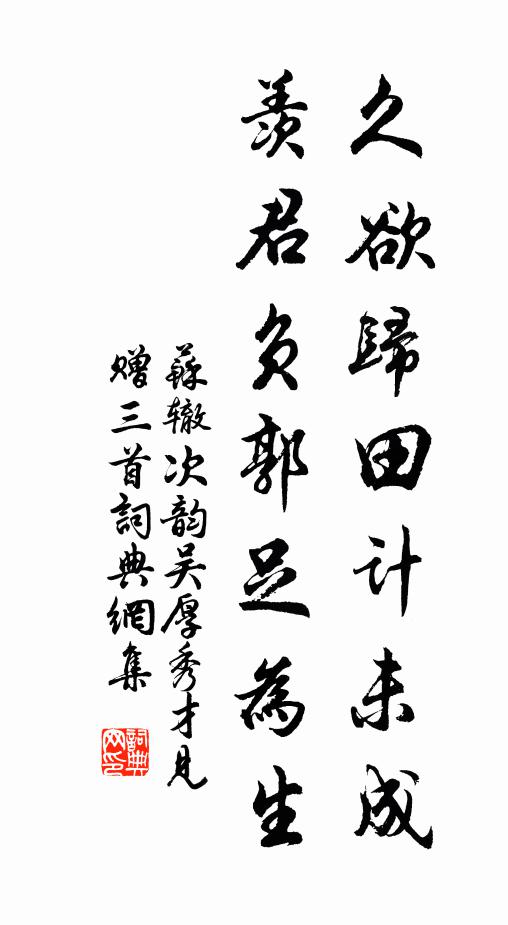 久欲歸田计未成
羨君负郭足為生
蘇辙次韵吴厚秀才見
赠三首詞典網集
詞典
网印